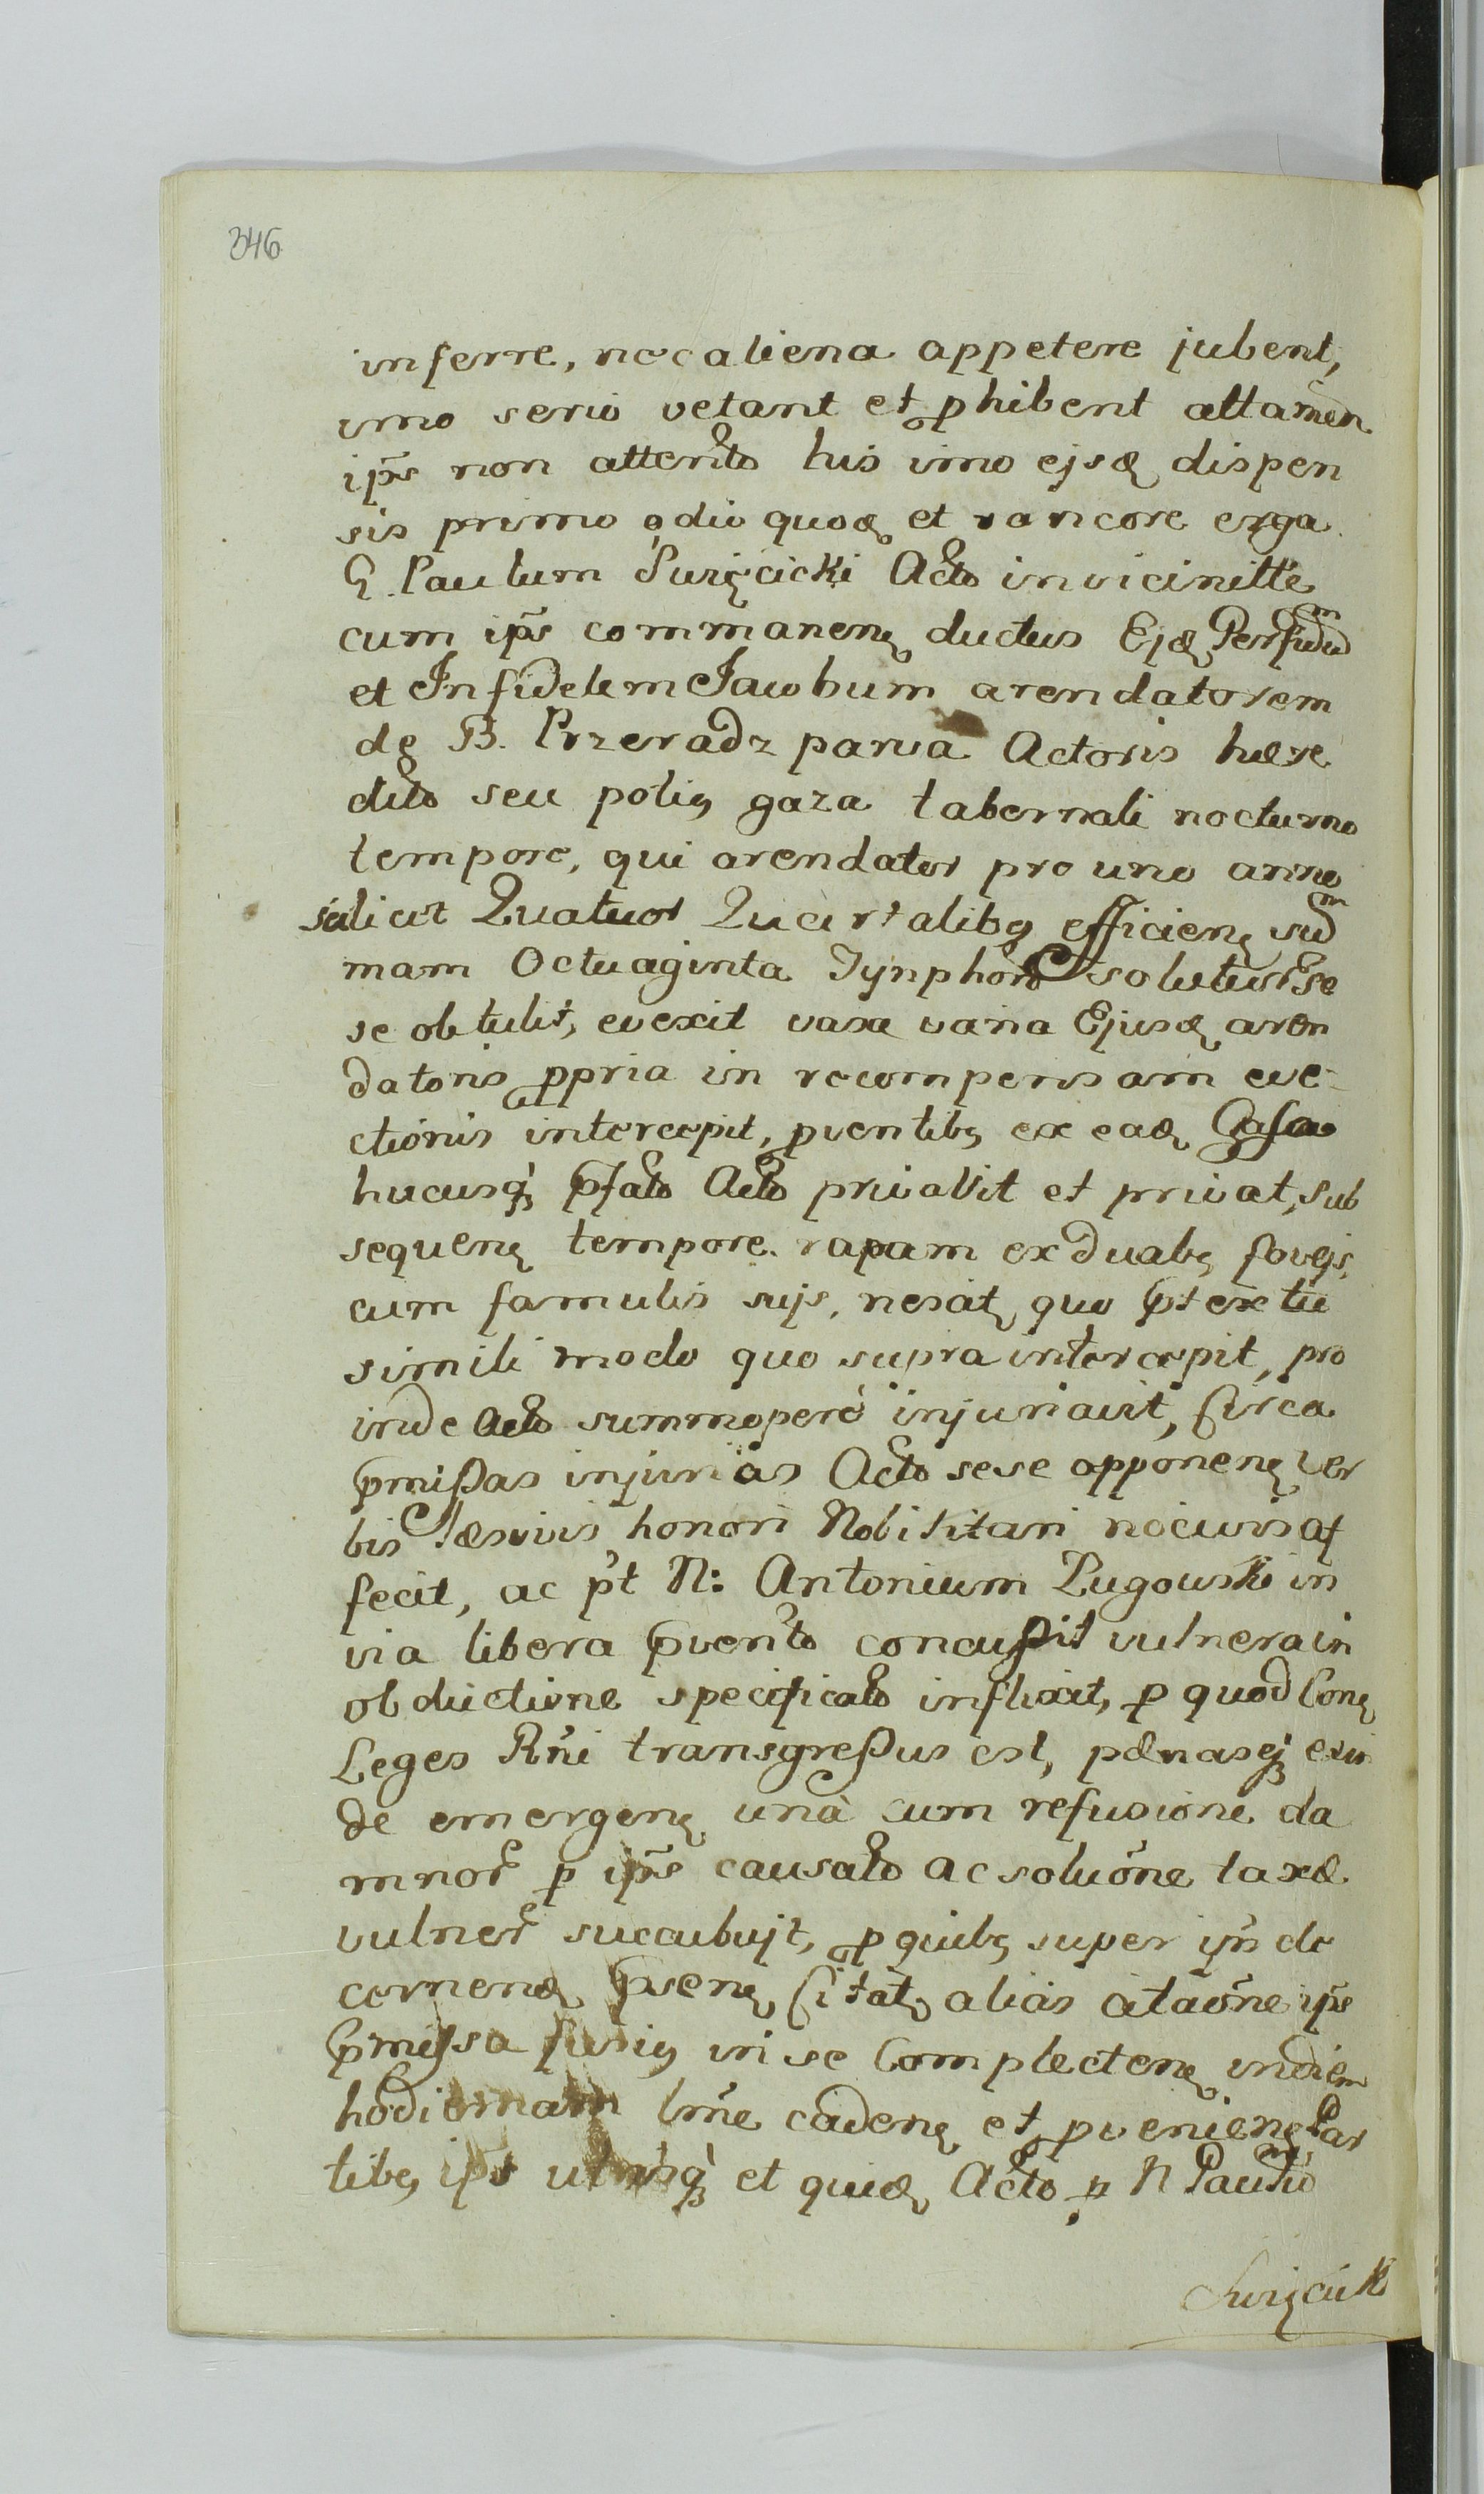 346
inferre, nec aliena appetere jubent,
imo serio vetant et phibent attamen
ips non attento his imo ejsd dispen
sis primo odio quoq et rancore erga
G. Paulum Świącicki Acto in vicinitte
cum ips commanen ductus Ejd Perfidu
et Infidelem Jacobum arendatorem
de B. Przeradz parva Actoris hære
dito seu potiꝰ gaza tabernali nocturno
tempore, qui arendator pro uno anno
scilicet Quatuor Quartalibꝰ efficien sum
mam Octuaginta Tynphor soluturꝰ se
se obtulit, evexit vasa varia Ejusd aren
datoris ppria in recompensam eve-
ctionis intercepit, pventibꝰ ex ead Casa
hucusq pfato Acto privavit et privat, sub
sequen tempore rapam ex duabꝰ foveis
cum famulis sujs, nescit quo ptextu
simili modo quo supra intercepit, pro
inde Acto summoperè injuriavit, Circa
pmißas injurias Acto sese opponen ver
bis læsivis honori Nobilitari nocuis af
fecit, ac pt N: Antonium Lugowski in
via libera pvento concußit vulnera in
obductione specificato inflixit, p quod Con
Leges Rni transgreßus est, pænasq exin
de emergen unà cum refusione da
mnor p ips causato ac solutione taxæ
vulner succubujt, p quibꝰ super ijs de
cernend psen Citatꝰ alias citatione ips
pmissa fusiꝰ in se Complecten in diem
hodiernam lme caden et pvenien Par
tibꝰ ips utrisq et quid Acto p N Paulu
Świącick